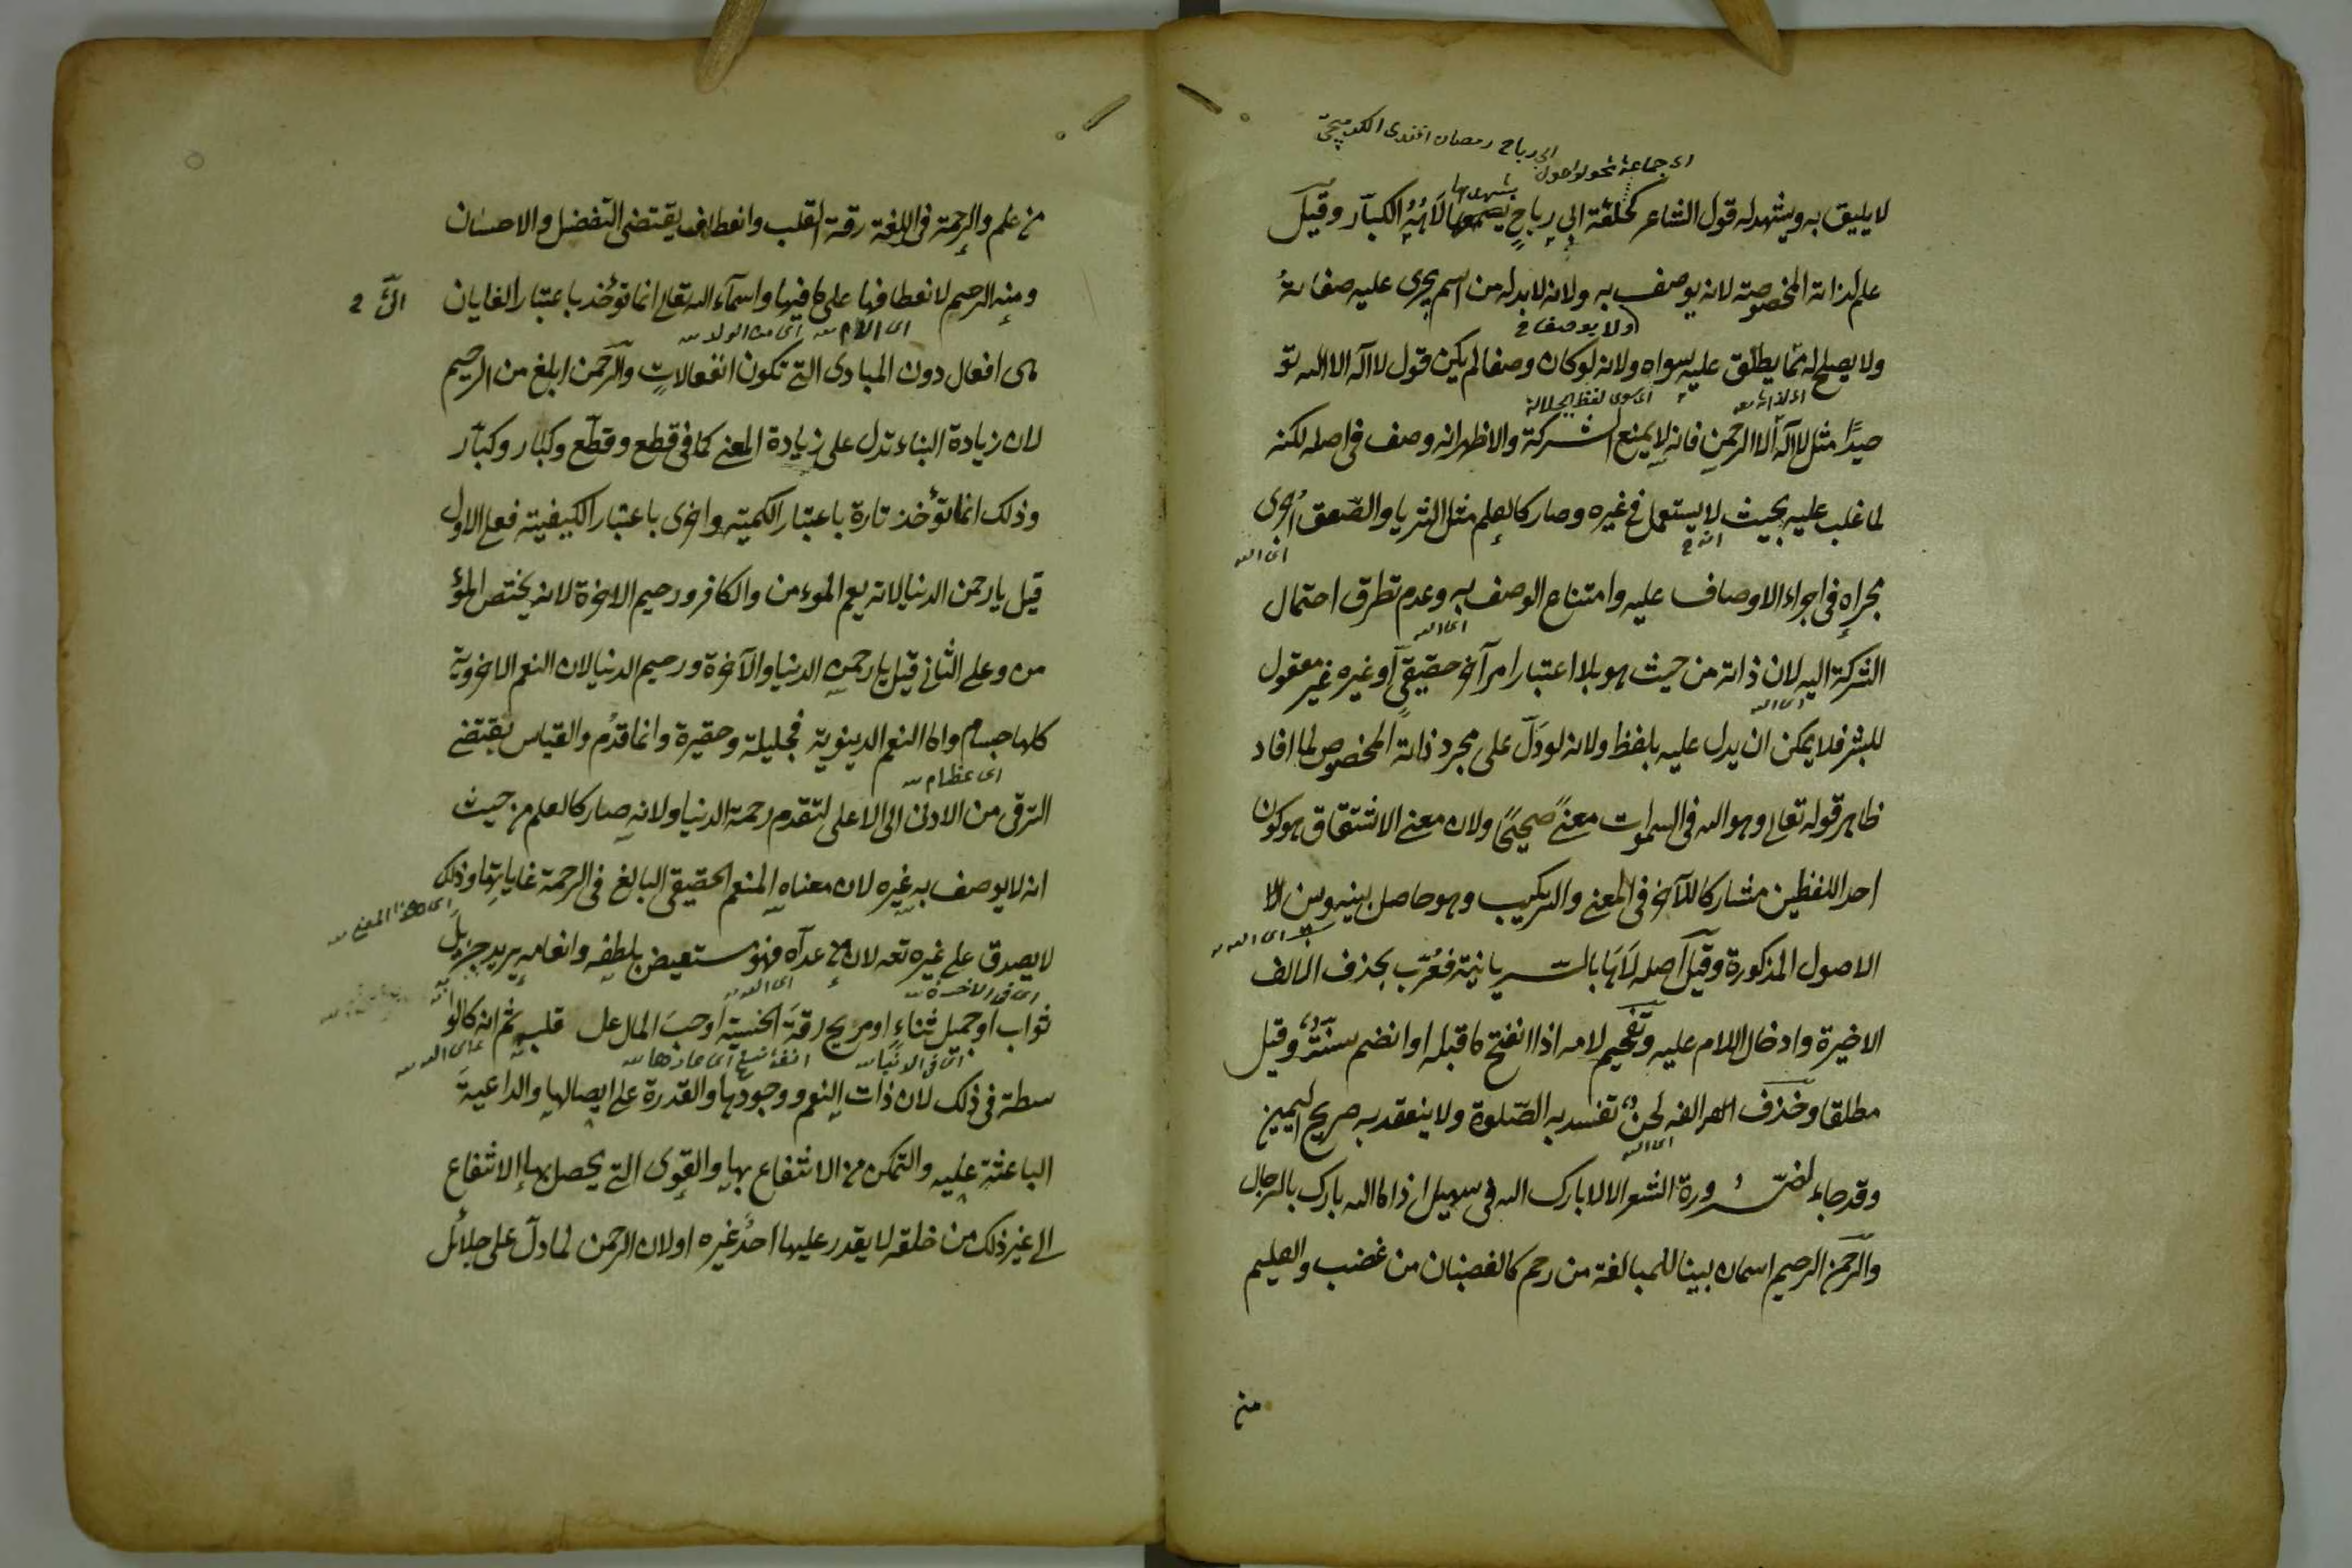 اى جماعة تحولوا حول ابى رباح رمضان افندى
لا يليق به ويشهد له قول الشاعر كحلفة ابى رباحٍ يسمعها لَاهُهُ الكبار وقيل
يشهدها
علم لذاته المخصوصة لانه يوصف به ولانه لابد له من اسم يجرى عليه صفاته
ولا يوصف
ولا يصلح له مما يطلق عليه سواه ولانه لو كان وصفا لم يكن قول لا اله الا الله تو
اى لذاته
اى سوى لفظ الجلالة
حيدًا مثل لا اله الا الرحمن فانه لا يمنع الشركة والاظهر انه وصف فى اصله لكنه
لما غلب عليه بحيث لا يستعمل فى غيره وصار كالعلم مثل الثريا والصعق اُجرى
اى الله
مجراه فى اجراء الاوصاف عليه وامتناع الوصف به وعدم تطرق احتمال
اى الله
الشركة اليه لان ذاته من حيث هو بلا اعتبار امر آخر حقيقى او غيره غير معقول
اى الله
للبشر فلا يمكن ان يدل عليه بلفظ ولانه لو دَلّ على مجرد ذاته المخصوص لما افاد
ظاهر قوله تعالى وهو الله فى السموات معنىً صحيحًا ولان معنى الاشتقاق هو كون
احد اللفظين مشاركا للآخر فى المعنى والتركيب وهو حاصل بينه وبين
اى الله
الاصول المذكورة وقيل اصله لَاهَا بالسريانية فعُرّب بحذف الالف
الاخيرة وادخال اللام عليه وتفخيم لامه اذا انفتح ما قبله او انضم سنةٌ وقيل
مطلقا وحذف الفه لحنٌ تفسد به الصّلوة ولا ينعقد به صريح اليمين
اى الله
وقد جاء لضرورة الشعر الا لا بارك الله فى سهيل اذا ما الله بارك بالرجال
والرّحمن الرحيم اسمان بنيا للمبالغة من رحم كالغضبان من غضب والعليم
من
من علم والرحمة فى اللغة رقة القلب وانعطاف يقتضى التفضل والاحسان
ومنه الرحيم لانعطافها على ما فيها واسماء الله تعالى انما تؤخذ باعتبار الغايات التى
اى الام اى من الولد
هى افعال دون المبادى التى تكون انفعالات والرّحمن ابلغ من الرحيم
لان زيادة البناء تدل على زيادة المعنى كما فى قطع وقطّع وكبار وكبّار
وذلك انما تؤخذ تارة باعتبار الكمية واخرى باعتبار الكيفية فعلى الاول
قيل يا رحمن الدنيا لانه يعم المؤمن والكافر ورحيم الاخرة لانه يختص المؤ
من وعلى الثانى قيل يا رحمن الدنيا والآخرة ورحيم الدنيا لان النعم الاخروية
كلها جسام واما النعم الدينوية فجليلة وحقيرة وانما قدّم والقياس يقتضى
اى عظام
الترقى من الادنى الى الاعلى لتقدم رحمة الدنيا ولانه صار كالعلم من حيث
انه لا يوصف به غيره لان معناه المنعم الحقيقى البالغ فى الرحمة غايايتها وذلك
اى هذا المعنى
لا يصدق على غيره تعه لان من عداه فهو مستعيض بلطفه وانعامه يريد جزيل
اى فى الاخرة اى الله
ثواب او جميل ثناءٍ او مريح رقة الجنسية او حب المال عن قلبه ثم انه كالو
اى فى الدنيا
سطة فى ذلك لان ذات النعم ووجودها والقدرة على ايصالها والداعية
الباعثة عليه والتمكن من الانتفاع بها والقوى التى يحصل بها الانتفاع
الى غير ذلك من خلقه لا يقدر عليها احدٌ غيره او لان الرحمن لما دلّ على جلائل